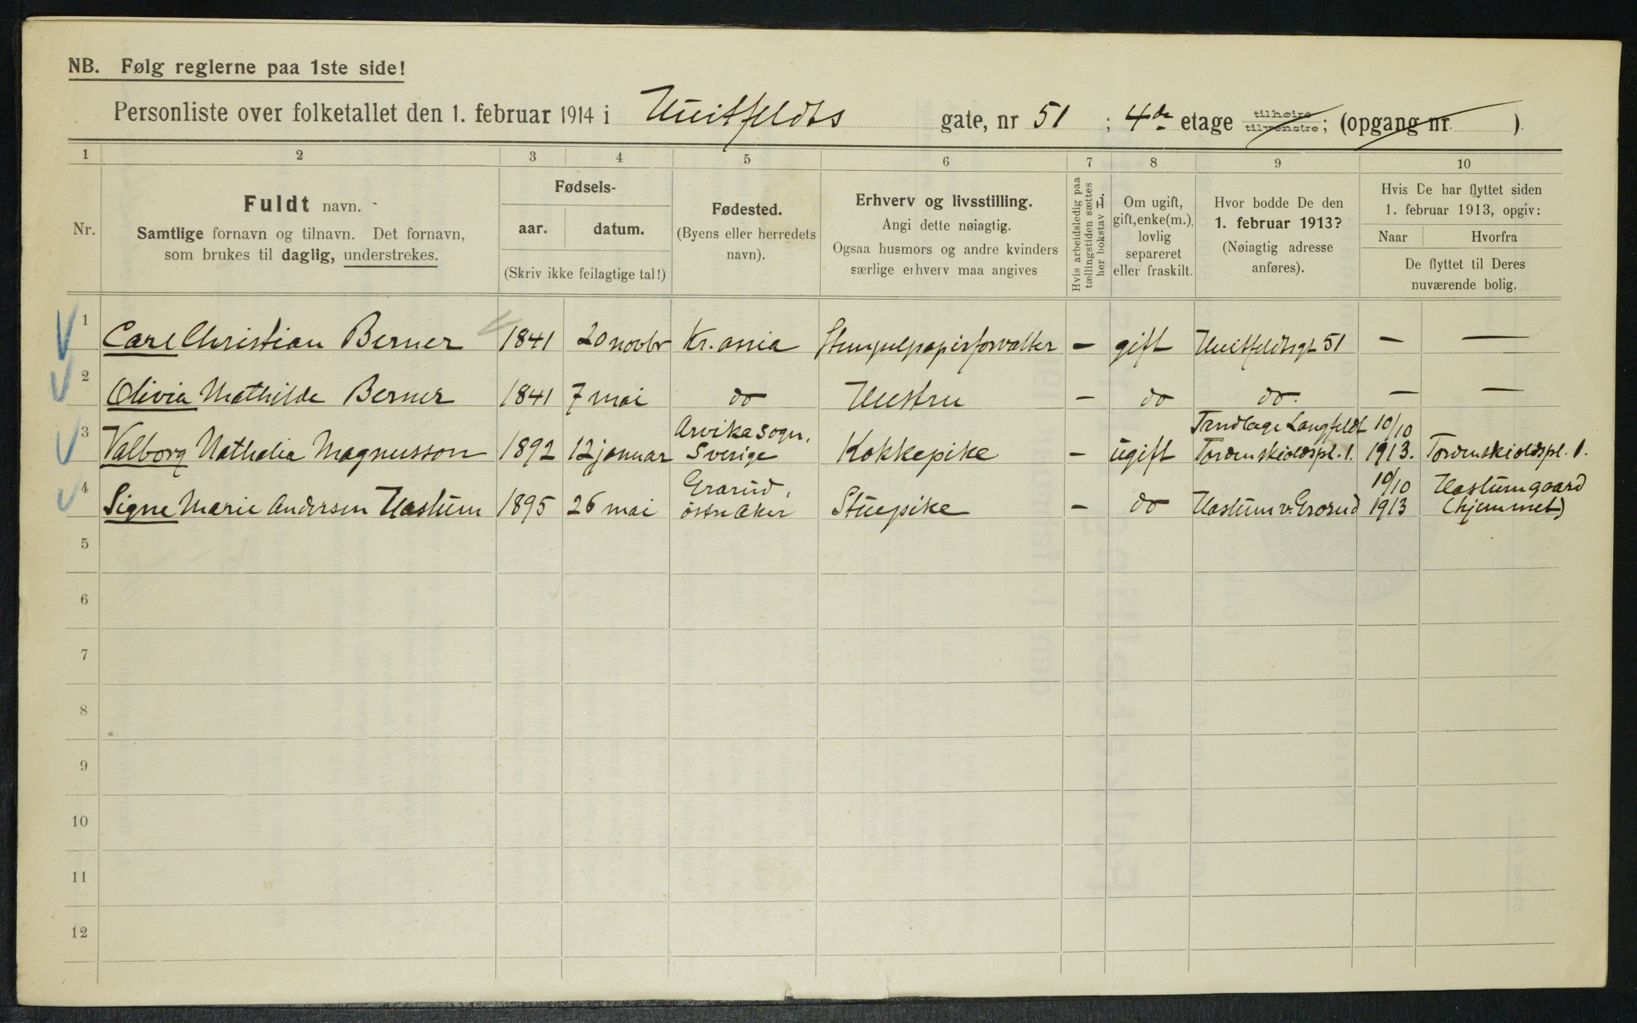 NB. Følg reglerne paa 1ste side!
Personliste over folketallet den 1. februar 1914 i Huitfeldts gate, nr 51 ; 4de etage tilhøire tilvenstre; (opgang nr )
1 2 3 4 5 6 7 8 9 10
Nr.
Fuldt navn.
Samtlige fornavn og tilnavn. Det fornavn,
som brukes til daglig, understrekes.
Fødsels-
aar. datum.
(Skriv ikke feilagtige tal!)
Fødested.
(Byens eller herredets
navn).
Erhverv og livsstilling.
Angi dette nøiagtig.
Ogsaa husmors og andre kvinders
særlige erhverv maa angives
Hvis arbeidsledig paa
tællingstiden sættes
her bokstav L.
Om ugift,
gift, enke(m.),
lovlig
separeret
eller fraskilt.
Hvor bodde De den
1. februar 1913?
(Nøiagtig adresse
anføres).
Hvis De har flyttet siden
1. februar 1913, opgiv:
Naar Hvorfra
De flyttet til Deres
nuværende bolig.
1 Carl Christian Berner 1841 20 novbr Kr.ania Stempelpapirforvalter - gift Huitfeldtsgt 51 - -
2 Olivia Mathilde Berner 1841 7 mai do Hustru - do do. - -
3 Valborg Nathalia Magnusson 1892 12 januar Arvika sogn, Sverige Kokkepike - ugift Tandlæge Langfeldt Tordenskioldspl. 1. 10/10 1913. Tordenskioldspl. 1.
4 Signe Marie Andersen Haslum 1895 26 mai Grorud, østre Aker Stuepike - do Haslum v. Grorud 10/10 1913 Haslumgaard (hjemmet)
5
6
7
8
9
10
11
12